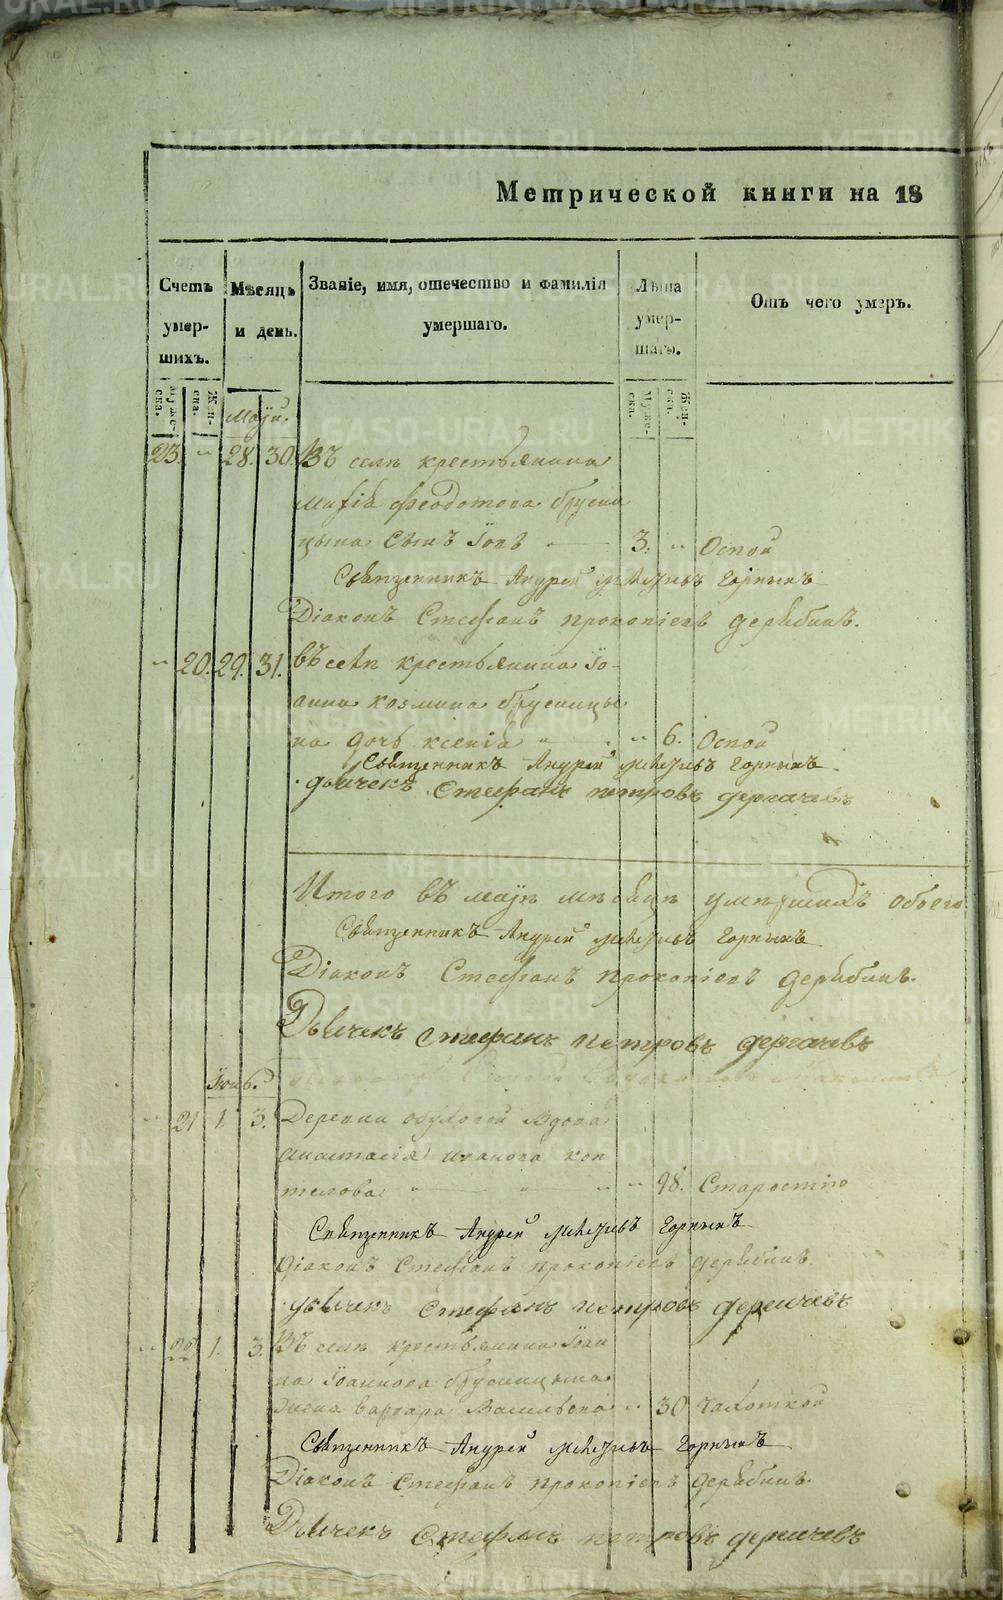 Метрической книги на 18
Счетъ умер-шихъ.
Мѣсяцъ и день.
Званіе, имя, отечество и фамилія умершаго.
Лѣта умер-шаго.
Отъ чего умеръ.
Муже-ска.
Жен-ска.
Муже-ска.
Жен-ска.
Маій.
23. " 28. 30. Въ селѣ крестьянина
Феодотова Бусни
цына Сынъ 3. " Оспой
Священникъ Андрей Горныхъ
Діаконъ Стефанъ Прокопіевъ Дерябинъ.
" 20. 29. 31. въ селѣ крестьянина Іо-
анна Козмина Брусницы
на дочь Ксенія " " 6. Оспой
Священникъ Андрей Горныхъ.
Дьячекъ Стефанъ Петровъ Дергачевъ
Итого въ маіѣ мѣсяцѣ умершихъ обоего
Священникъ Андрей Горныхъ
Діаконъ Стефанъ Прокопіевъ Дерябинъ.
Дьячекъ Стефанъ Петровъ Дергачевъ
" 21 1. 3. Деревни вдова
Анастасія Иванова Коп
телова " " " " 98. Старостію
Священникъ Андрей Горныхъ
Діаконъ Стефанъ Прокопіевъ Дерябинъ.
Дьячекъ Стефанъ Петровъ Дергачевъ
" 22 1. 3. Въ селѣ крестьянина Іоан
на Іоаннова Брусницына
жена Варвара Васильева " 30 Чахоткой
Священникъ Андрей Горныхъ
Діаконъ Стефанъ Прокопіевъ Дерябинъ.
Дьячекъ Стефанъ Петровъ Дергачевъ
METRIKI.GASO-URAL.RU